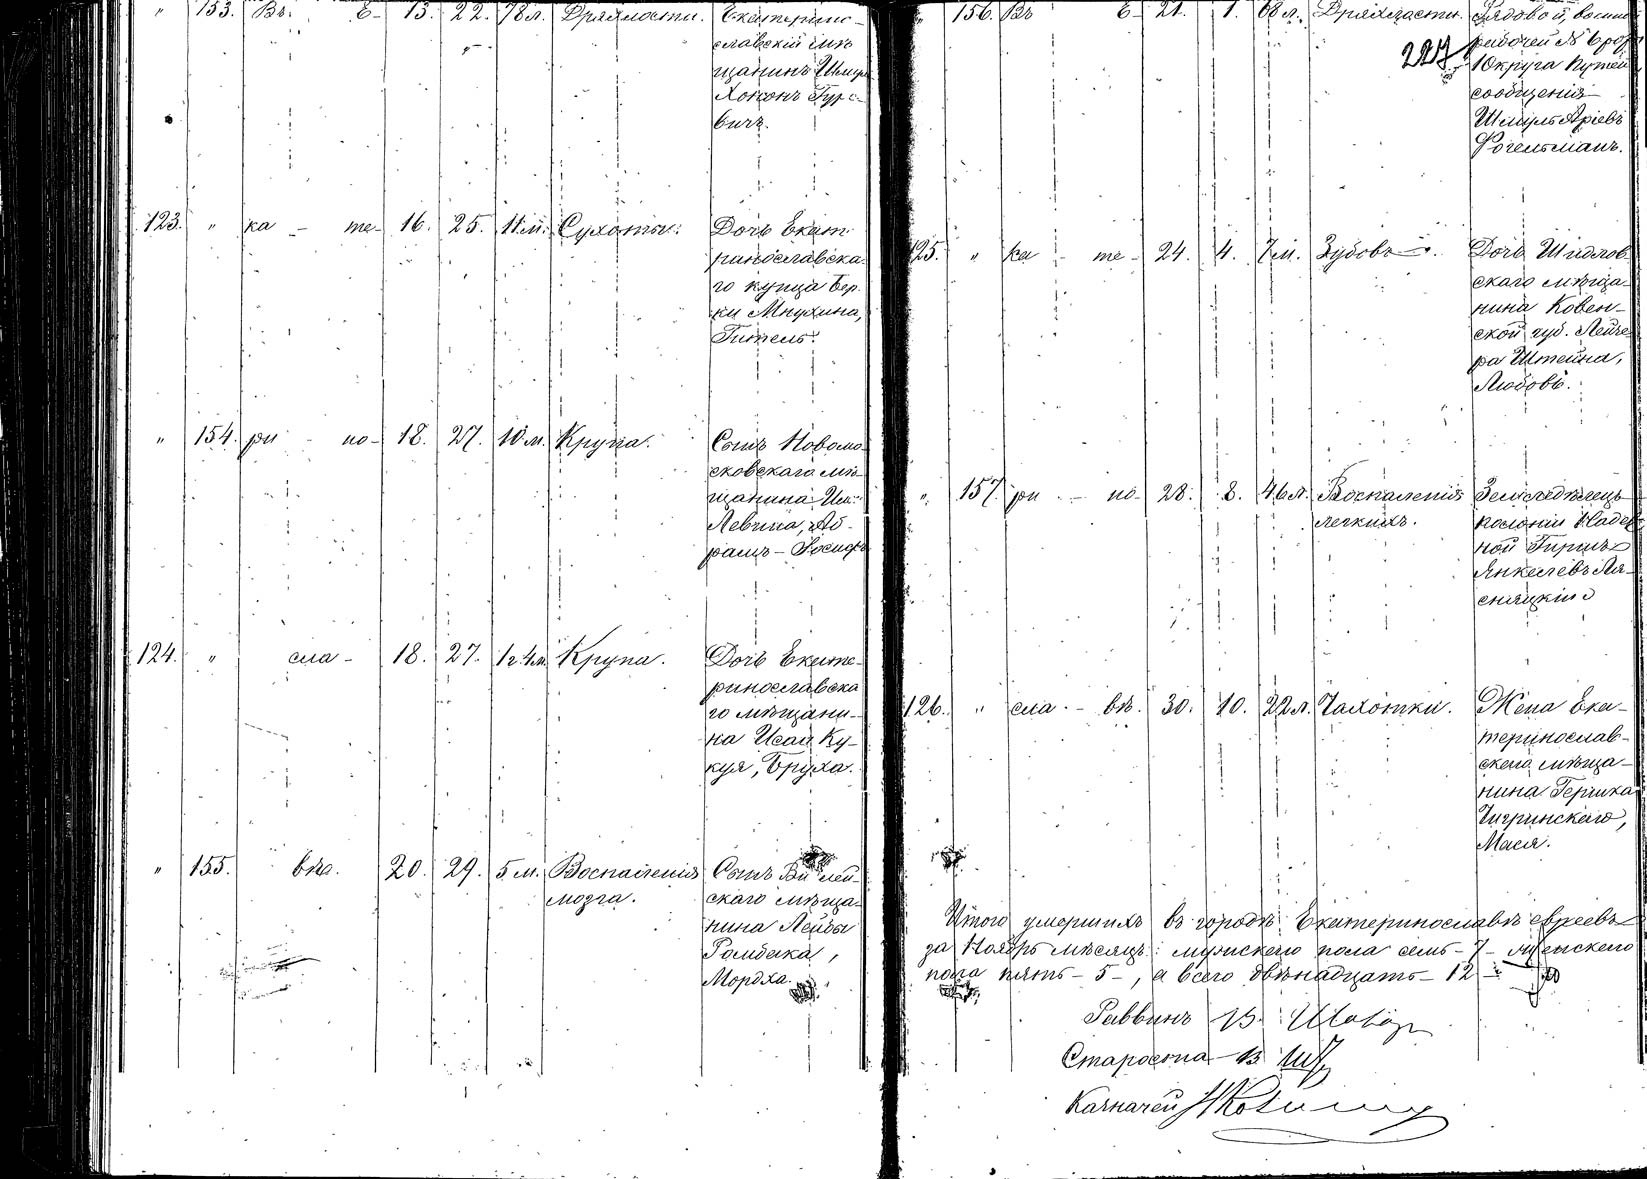 " 153. Въ Е- 13. 22. 78 л. Дряхлости. Екатерино-
славскій мѣ
щанинъ Шмерл
Хононъ Гур-
вичъ.
123. " ка - те- 16. 25. 11 м. Сухоты. Дочь Екат
ринославска
го купца Бер
ки Мнухина,
Гитель.
" 154. ри - но- 18. 27. 10 м. Крупа. Сынъ Новомо
сковскаго мѣ
щанина
Левина, Аб-
рамъ - Іосифъ
124. " сла - 18. 27. 1 г. 4 м. Крупа. Дочь Екате-
ринославска
го мѣщани-
на Исаи Ку-
куя, Бруха.
" 155. вѣ. 20. 29. 5 м. Воспаленія Сынъ Вилей-
мозга. скаго мѣща-
нина Лейбы
Ромбака,
Мордха.
" 156. Въ Е- 21. 1. 68 л. Дряхлости. Рядовой, военно
227 рабочей № 6 рот
Округа Путей
сообщенія
Шмуль Аріевъ
Фогельманъ.
125. " ка - те- 24. 4. 7 м. Зубовъ. Дочь Шидлов
скаго мѣща-
нина Ковен-
ской губ. Лейзе-
ра Штейна,
Любовь.
" 157. ри - но- 28. 8. 46 л. Воспаленія Земледѣлецъ
легкихъ. колоніи Надеж
ной Гиршъ
Янкелевъ Ля-
сняцкій
126. " сла - вѣ. 30. 10. 22 л. Чахотки. Жена Ека-
теринослав-
скаго мѣща-
нина Гершка
Чигринскаго,
Мася.
Итого умершихъ въ городѣ Екатеринославѣ евреевъ
за Ноябрь мѣсяцъ: мужскаго пола семь - 7 - женскаго
пола пять - 5 -, а всего двѣнадцать - 12 -
Раввинъ В. Шавер
Староста
Казначей